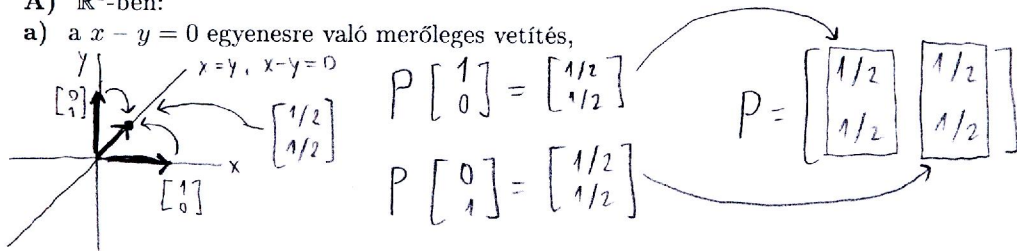 A) ℝ²-ben:
a) a x − y = 0 egyenesre való merőleges vetítés,
y
x = y, x-y=0
[0 1]
[1/2 1/2]
x
[1 0]
P [1 0] = [1/2 1/2]
P [0 1] = [1/2 1/2]
P = [1/2 1/2
1/2 1/2]